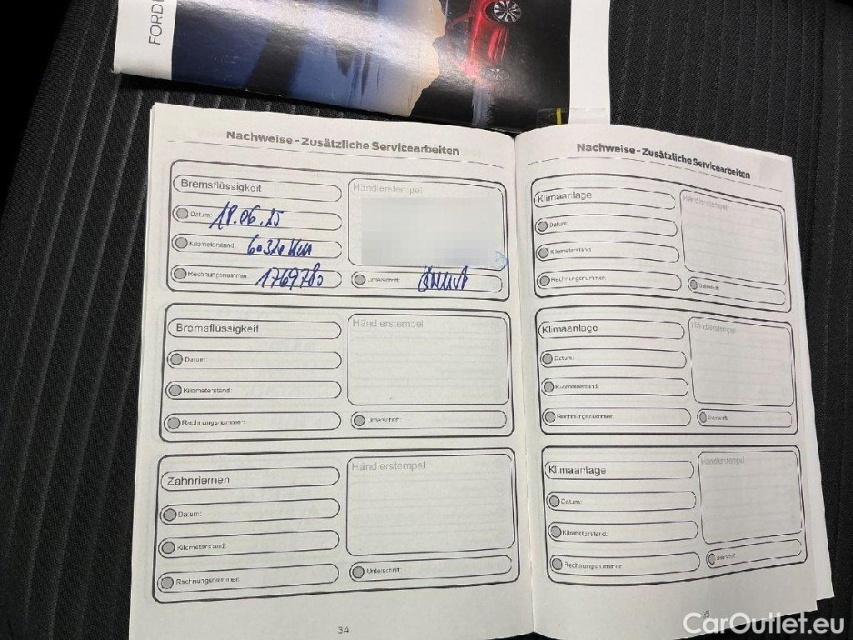 FORD
Nachweise - Zusätzliche Servicearbeiten
Bremsflüssigkeit
Händlerstempel
Datum: 18.06.25
Kilometerstand:
Rechnungsnummer: 1769780
Unterschrift:
Bremsflüssigkeit
Händlerstempel
Datum:
Kilometerstand:
Rechnungsnummer:
Unterschrift:
Zahnriemen
Händlerstempel
Datum:
Kilometerstand:
Rechnungsnummer:
Unterschrift:
34
Nachweise - Zusätzliche Servicearbeiten
Klimaanlage
Händlerstempel
Datum:
Kilometerstand:
Rechnungsnummer:
Unterschrift:
Klimaanlage
Händlerstempel
Datum:
Kilometerstand:
Rechnungsnummer:
Unterschrift:
Klimaanlage
Händlerstempel
Datum:
Kilometerstand:
Rechnungsnummer:
Unterschrift:
CarOutlet.eu